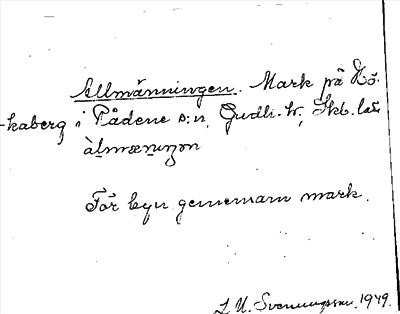 Allmänningen. Mark på Hö-
kaberg i Rådene s:n, Gudh. hr, Skb. län
àlmænıŋən
För byn gemensam mark.
S. Svenningsson. 1949.